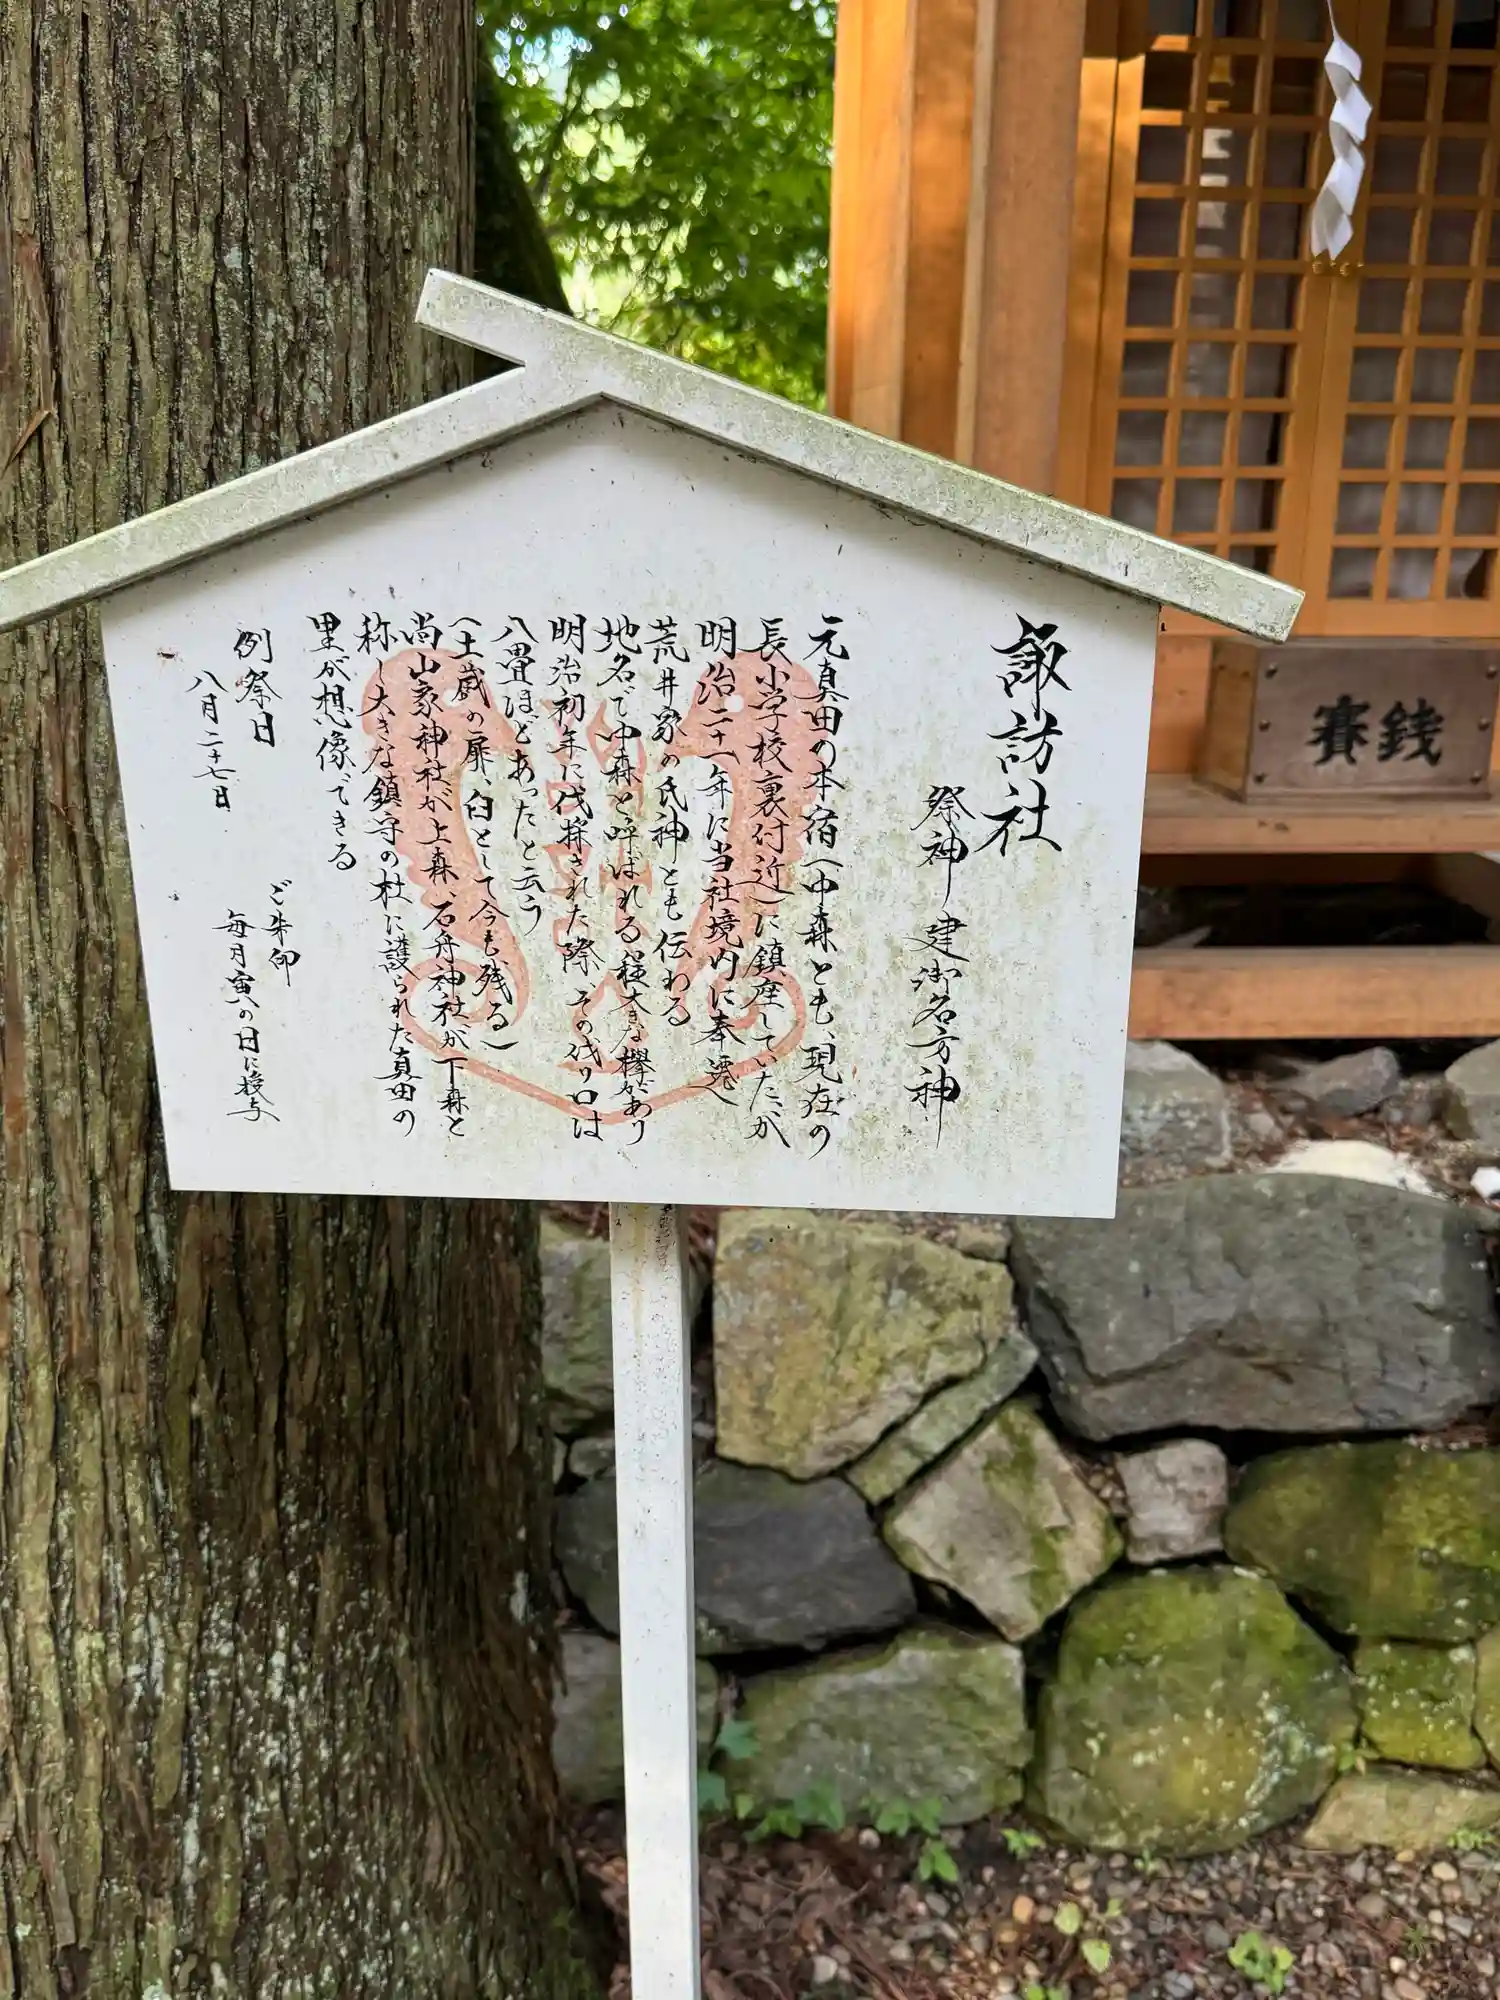 諏訪社
祭神 建御名方神
元真田の本宿(中森とも、現在の
長小学校裏付近)に鎮座していたが
明治二十一年に当社境内に奉遷
荒井家の氏神とも伝わる
地名で中森と呼ばれる程大きな欅があり
明治初年に伐採された際、その伐り口は
八畳ほどあったと云う
(土蔵の扉、臼として今も残る)
尚山家神社が上森、石舟神社が下森と
称し大きな鎮守の杜に護られた真田の
里が想像できる
例祭日
八月二十七日
ご朱印
毎月寅の日に授与
賽銭